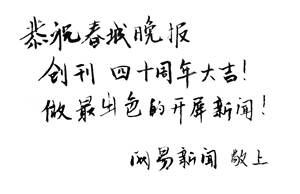 恭祝春城晚报
创刊四十周年大吉!
做最出色的开屏新闻!
网易新闻 敬上